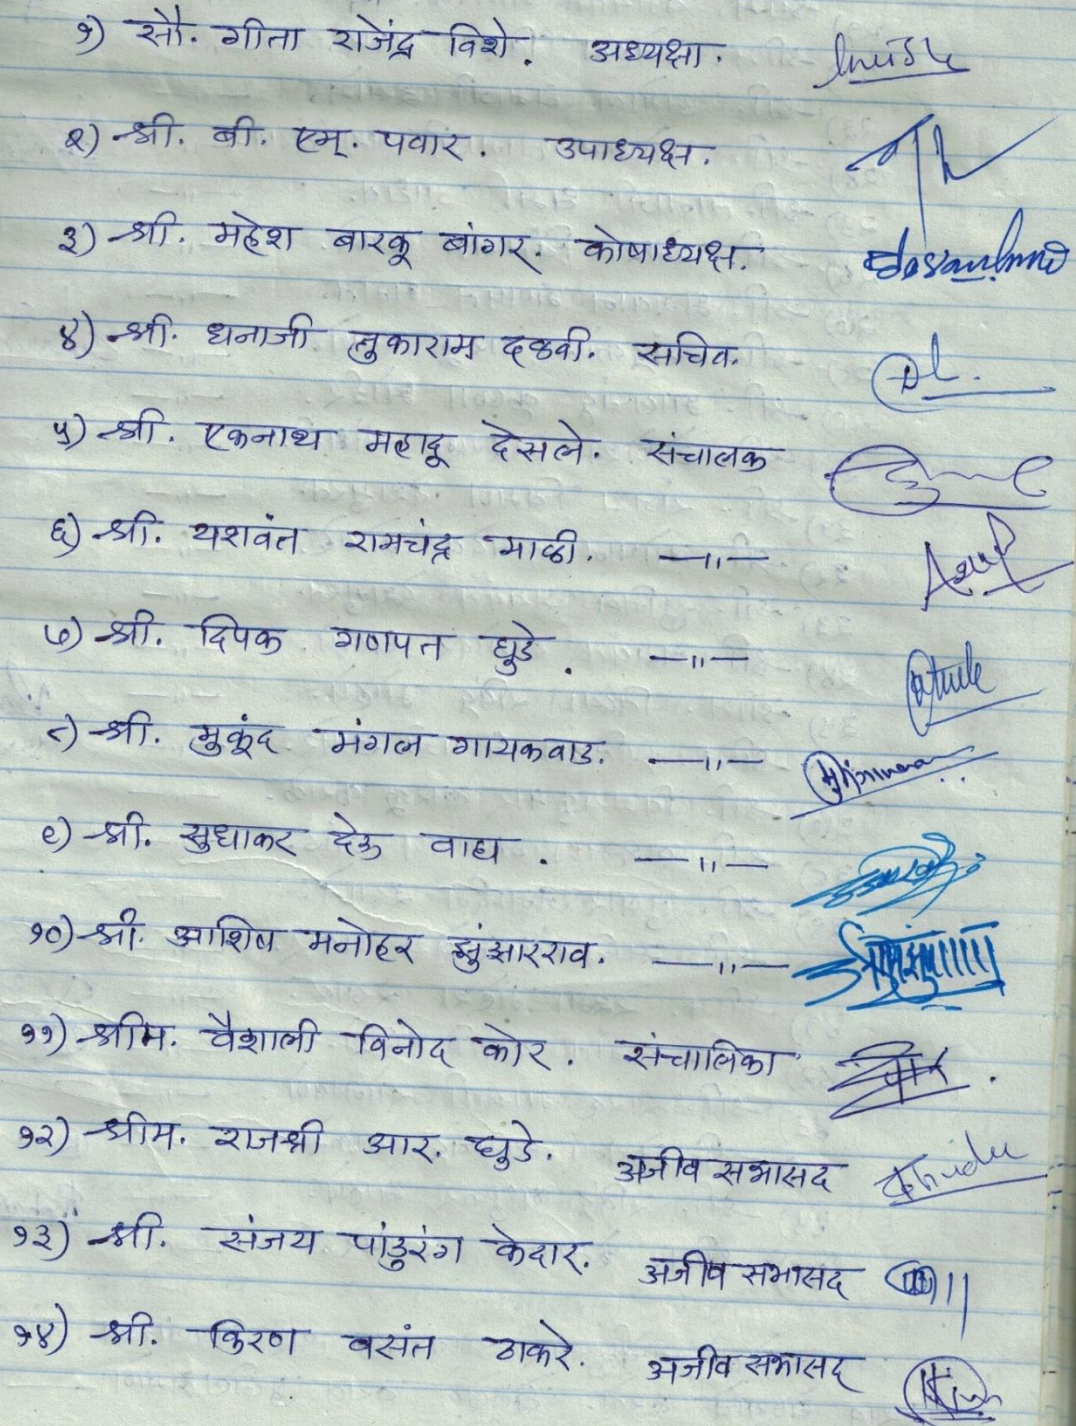 १) सौ. गीता राजेंद्र विशे. अध्यक्षा.
२) श्री. बी. एम्. पवार. उपाध्यक्ष.
३) श्री. महेश बारकू बांगर. कोषाध्यक्ष.
४) श्री. धनाजी तुकाराम दळवी. सचिव.
५) श्री. एकनाथ महादू देसले. संचालक
६) श्री. यशवंत रामचंद्र माळी. —"—
७) श्री. दिपक गणपत घुडे. —"—
८) श्री. मुकूंद मंगल गायकवाड. —"—
९) श्री. सुधाकर देऊ वाघ. —"—
१०) श्री. आशिष मनोहर झुंझारराव. —"—
११) श्रीम. वैशाली विनोद कोर. संचालिका
१२) श्रीम. राजश्री आर. घुडे. अजीव सभासद
१३) श्री. संजय पांडुरंग केदार. अजीव सभासद
१४) श्री. किरण वसंत ठाकरे. अजीव सभासद